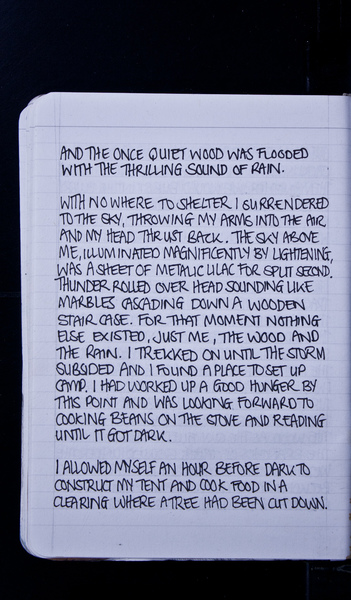 AND THE ONCE QUIET WOOD WAS FLOODED
WITH THE THRILLING SOUND OF RAIN.
WITH NOWHERE TO SHELTER I SURRENDERED
TO THE SKY, THROWING MY ARMS INTO THE AIR
AND MY HEAD THRUST BACK. THE SKY ABOVE
ME, ILLUMINATED MAGNIFICENTLY BY LIGHTENING,
WAS A SHEET OF METALIC LILAC FOR SPLIT SECOND.
THUNDER ROLLED OVER HEAD SOUNDING LIKE
MARBLES CASCADING DOWN A WOODEN
STAIR CASE. FOR THAT MOMENT NOTHING
ELSE EXISTED, JUST ME, THE WOOD AND
THE RAIN. I TREKKED ON UNTIL THE STORM
SUBSIDED AND I FOUND A PLACE TO SET UP
CAMP. I HAD WORKED UP A GOOD HUNGER BY
THIS POINT AND WAS LOOKING FORWARD TO
COOKING BEANS ON THE STOVE AND READING
UNTIL IT GOT DARK.
I ALLOWED MYSELF AN HOUR BEFORE DARK TO
CONSTRUCT MY TENT AND COOK FOOD IN A
CLEARING WHERE A TREE HAD BEEN CUT DOWN.